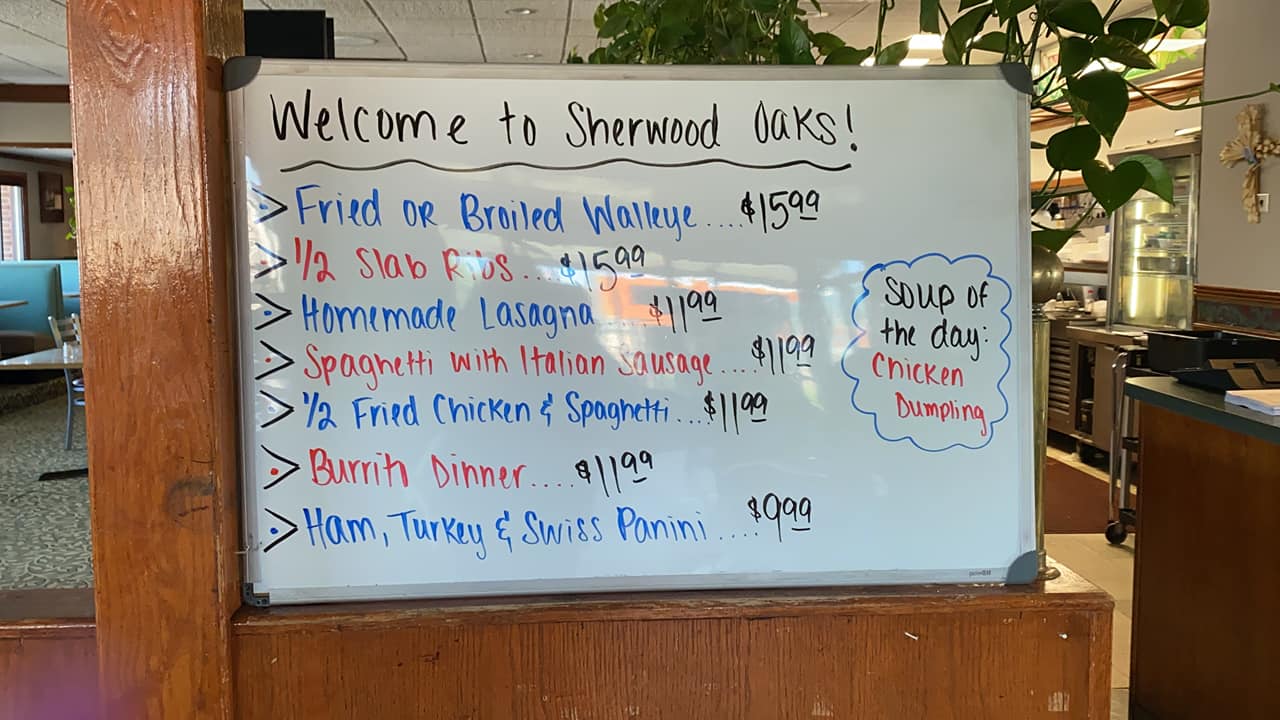 Welcome to Sherwood Oaks!
> Fried OR Broiled Walleye....$15.99
> 1/2 Slab Ribs...$15.99
> Homemade Lasagna....$11.99
> Spaghetti with Italian Sausage....$11.99
> 1/2 Fried Chicken & Spaghetti...$11.99
> Burrito Dinner....$11.99
> Ham, Turkey & Swiss Panini....$9.99
Soup of
the day:
Chicken
Dumpling